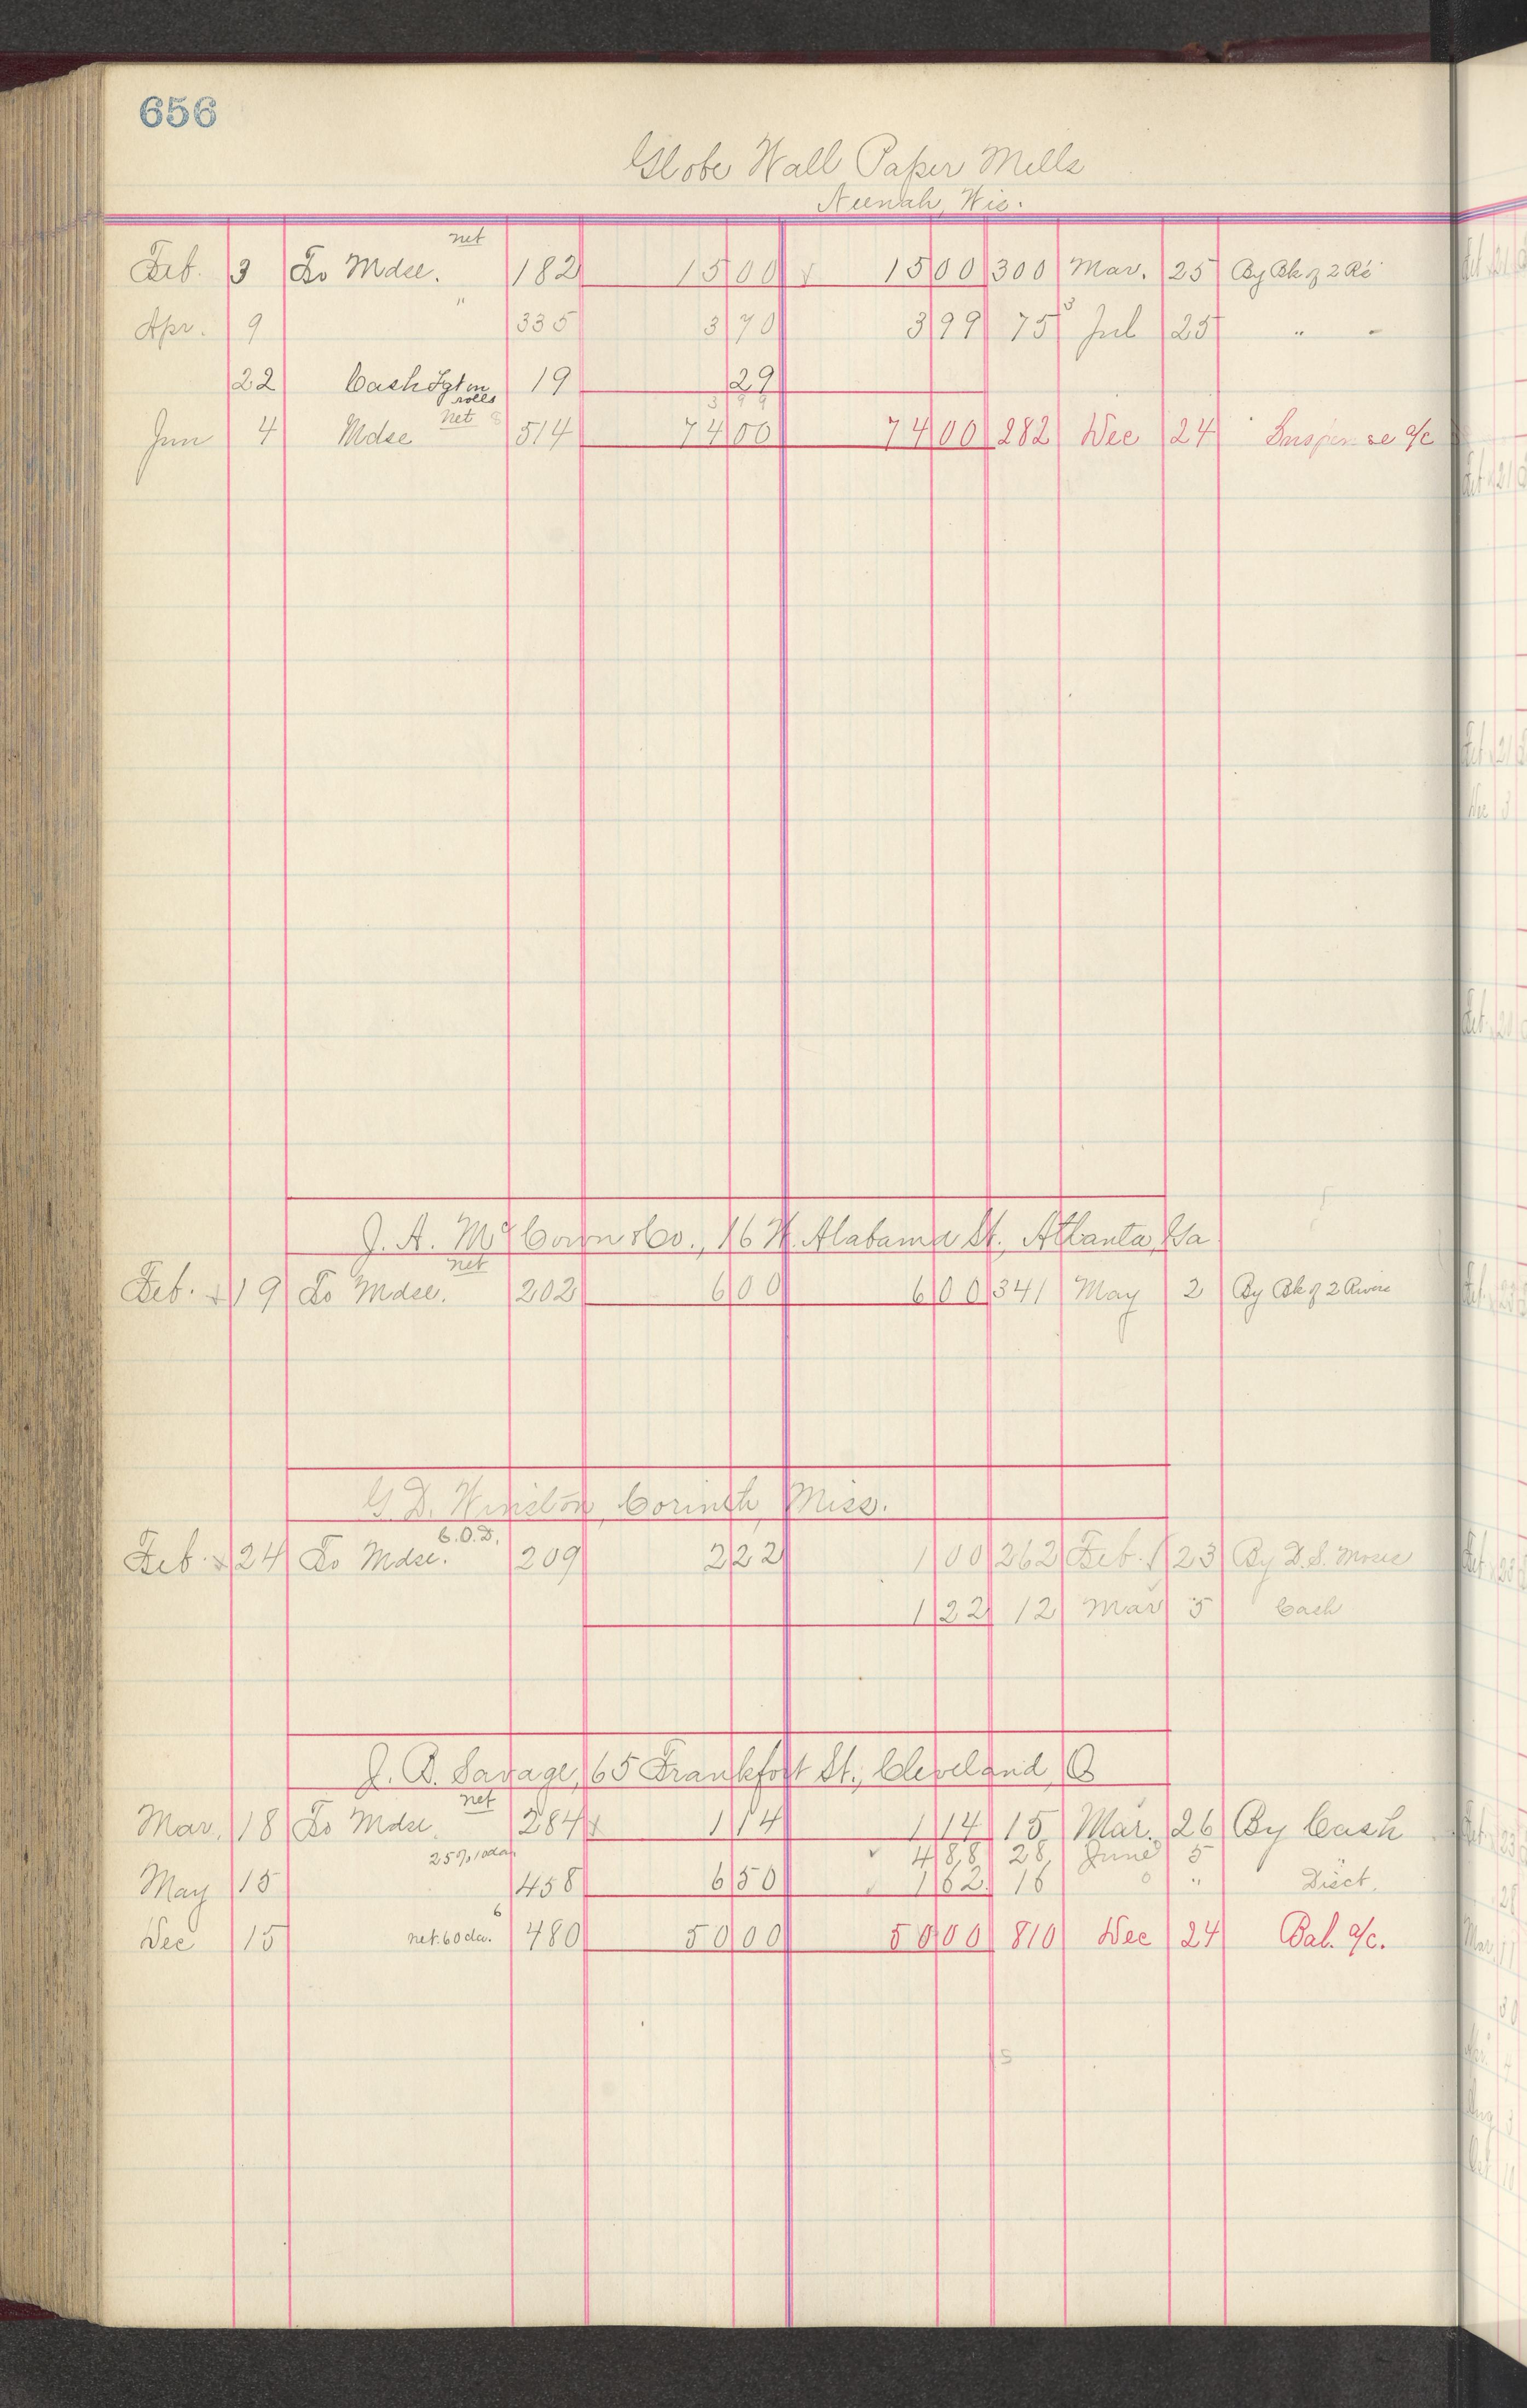 656
Globe Wall Paper Mills
Neenah, Wis.
net
Feb. 3 To Mdse. 182 15 00 15 00 300 Mar. 25 By Bk of 2 R's
Apr. 9 " 335 3 70 3 99 75 3 Jul 25 " "
22 Cash Fgt on rolls 19 29
3 99
Jun 4 Mdse net 8 514 74 00 74 00 282 Dec 24 Suspense a/c
J. A. McCown & Co., 16 W. Alabama St., Atlanta, Ga
net
Feb. 19 To Mdse. 202 6 00 6 00 341 May 2 By Bk of 2 Rivers
G. D. Winston, Corinth, Miss.
C.O.D.
Feb. 24 To Mdse. 209 2 22 1 00 262 Feb. 23 By D. S.
1 22 12 Mar 5 Cash
J. B. Savage, 65 Frankfort St., Cleveland, O
net
Mar. 18 To Mdse. 284 1 14 1 14 15 Mar. 26 By Cash
25% 10 da 4 88 28 June 5 "
May 15 458 6 50 1 62 16 " Disct.
Dec 15 net. 60 da. 6 480 50 00 50 00 810 Dec 24 Bal. a/c.